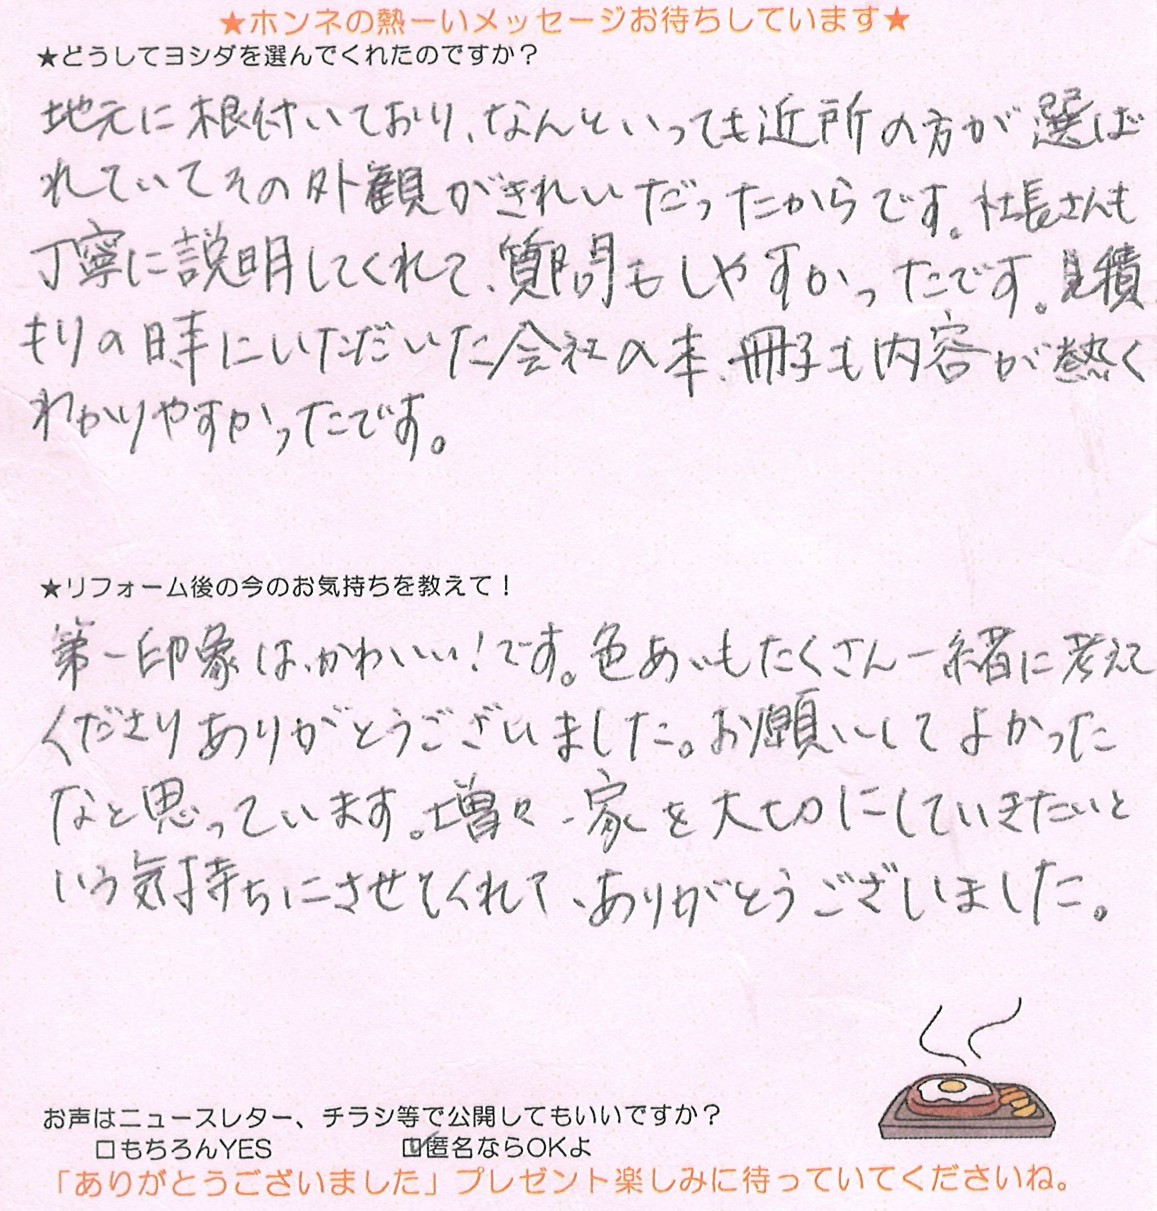 ★ホンネの熱ーいメッセージお待ちしています★
★どうしてヨシダを選んでくれたのですか？
地元に根付いており、なんといっても近所の方が選ば
れていてその外観がきれいだったからです。社長さんも
丁寧に説明してくれて、質問もしやすかったです。見積
もりの時にいただいた会社の本、冊子も内容が熱く
わかりやすかったです。
★リフォーム後の今のお気持ちを教えて！
第一印象は、かわいい！です。色あいもたくさん一緒に考えて
くださりありがとうございました。お願いしてよかった
なと思っています。増々、家を大切にしていきたいと
いう気持ちにさせてくれて、ありがとうございました。
お声はニュースレター、チラシ等で公開してもいいですか？
□もちろんYES ☑匿名ならOKよ
「ありがとうございました」プレゼント楽しみに待っていてくださいね。